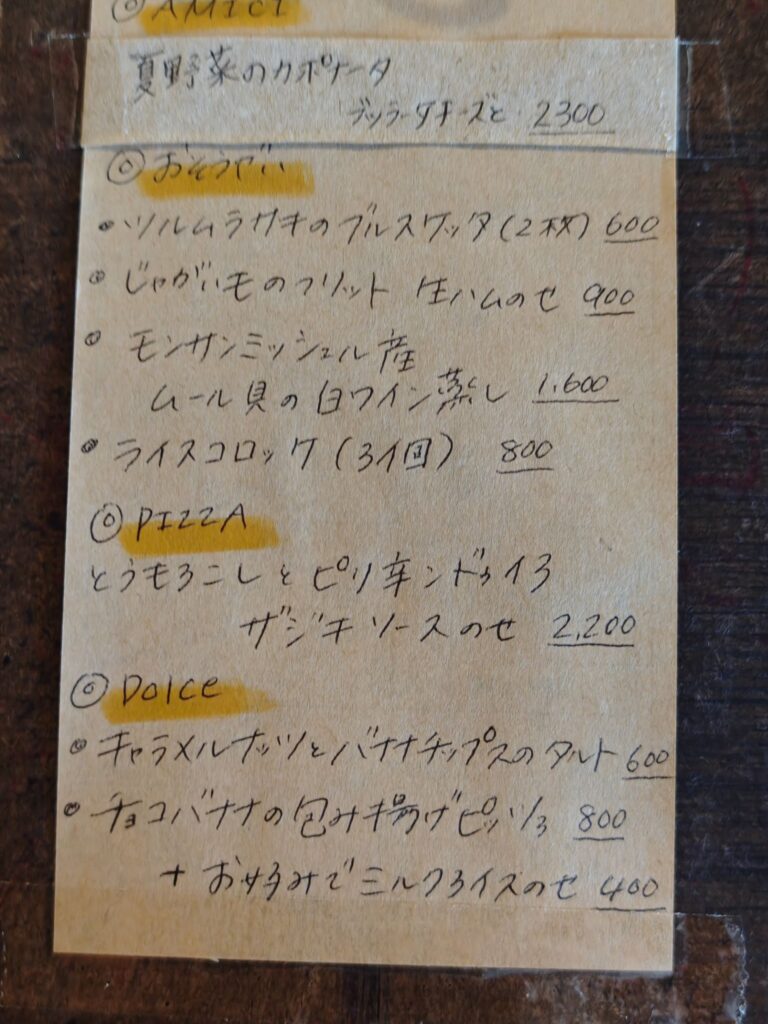 ◎ AMICI
夏野菜のカポナータ
ブッラータチーズと 2300
◎ おそうざい
• ツルムラサキのブルスケッタ(2枚) 600
• じゃがいものフリット 生ハムのせ 900
• モンサンミッシェル産
ムール貝の白ワイン蒸し 1,600
• ライスコロッケ(3個) 800
◎ PIZZA
とうもろこしとピリ辛ンドゥイヤ
ザジキソースのせ 2,200
◎ Dolce
• キャラメルナッツとバナナチップスのタルト 600
• チョコバナナの包み揚げピッツァ 800
+ お好みでミルクアイスのせ 400